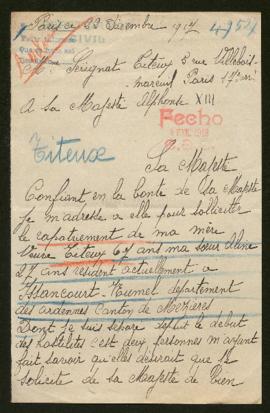 Paris ce 23 Décembre 1917
4954
Mme Sérignat Titeux 8 rue Villebois-
mareuil Paris 17e
A Sa Majesté Alphonse XIII
Fecho
1918
Titeux
Sa Majesté
Confiant en la bonté de Sa Majesté
je m'adresse a elle pour solliciter
le rapatriement de ma mère
Veuve Titeux 67 ans ma sœur Aline
27 ans résident actuellement a
Issancourt-Rumel département
des ardennes Canton de Mézières
Dont je suis séparé depuis le début
des hostilités c'est deux personnes m'ayant
fait savoir qu'elles désirait que je
solicite de sa Majesté de bien